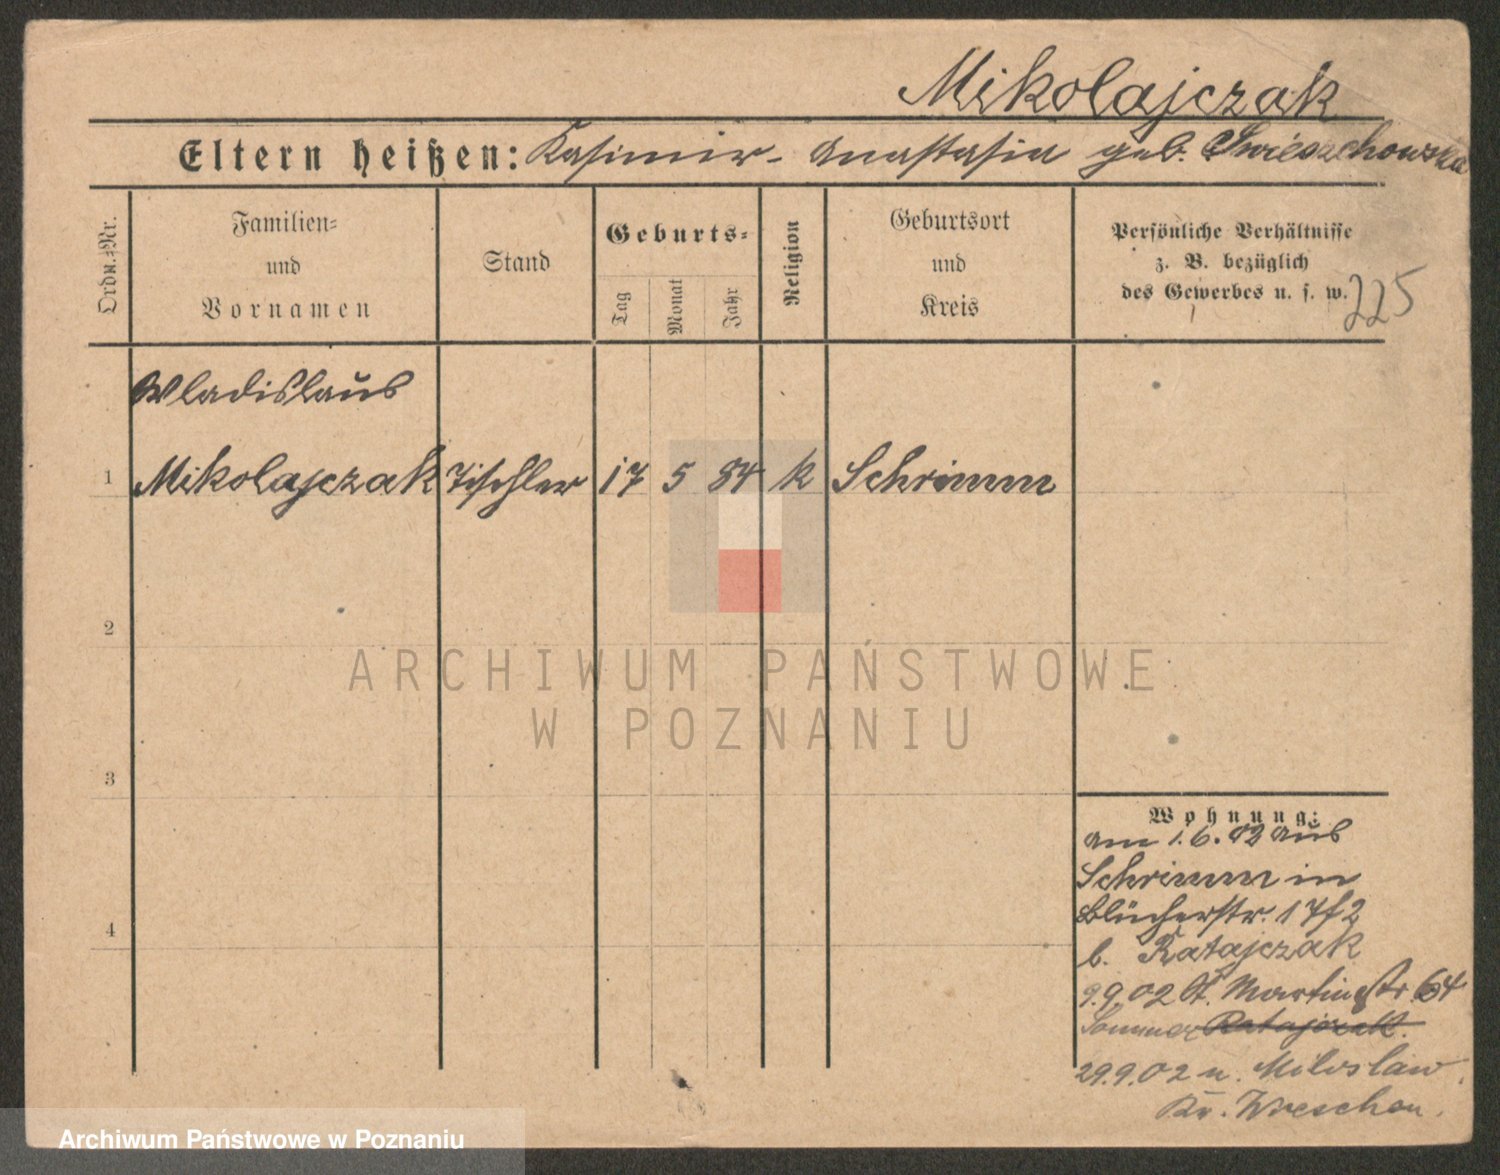 Mikolajczak
Eltern heißen: Kasimir - Anastasia geb. Swieszchowska
Ordn.-Nr.
Familien-
und
Vornamen
Stand
Geburts-
Tag
Monat
Jahr
Religion
Geburtsort
und
Kreis
Persönliche Verhältnisse
z. B. bezüglich
des Gewerbes u. s. w.
225
Wladislaus
1 Mikolajczak Tischler 17 5 84 k Schrimm
2
3
4
ARCHIWUM PAŃSTWOWE
W POZNANIU
Wohnung:
am 1.6.02 aus
Schrimm in
Blücherstr. 17 f 2
b. Ratajczak
9.9.02 St. Martinstr. 64
Sommer Ratajczak
29.9.02 n. Miloslaw
Kr. Wreschen.
Archiwum Państwowe w Poznaniu